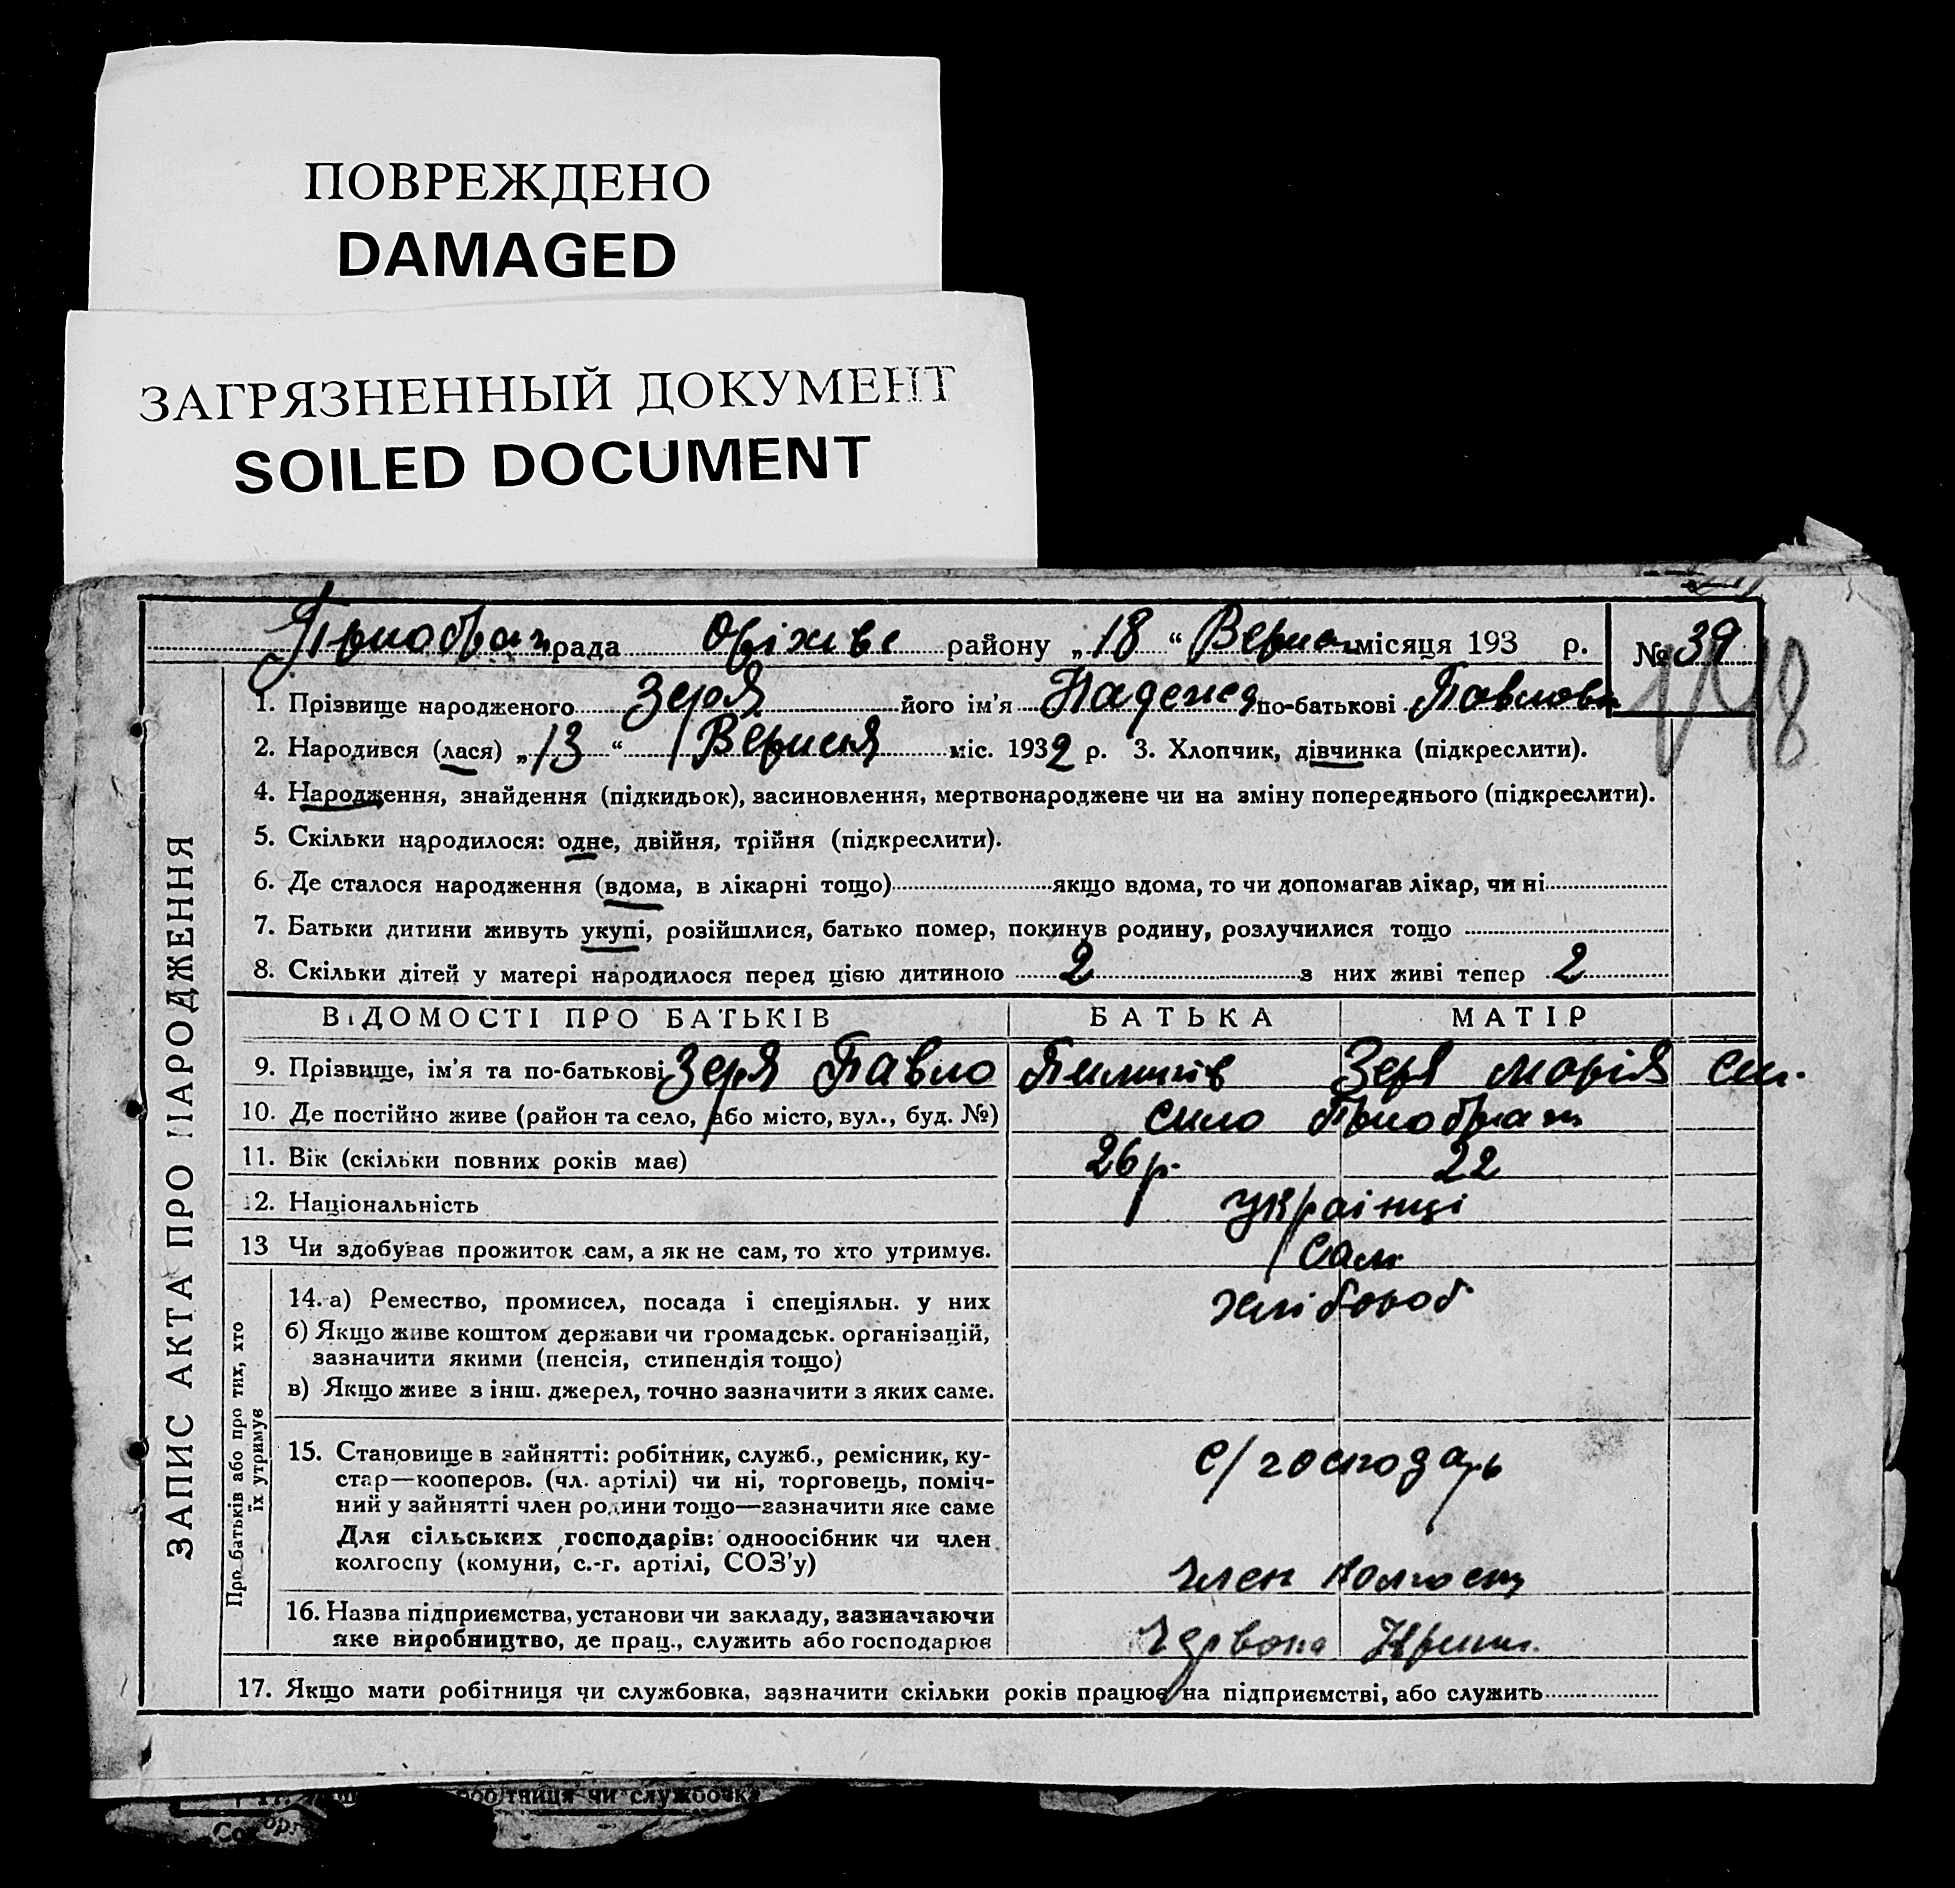 ПОВРЕЖДЕНО
DAMAGED
ЗАГРЯЗНЕННЫЙ ДОКУМЕНТ
SOILED DOCUMENT
рада району „18“ місяця 193 р. № 39
1. Прізвище народженого Зеря його ім'я по-батькові
2. Народився (лася) „13“ Вересня міс. 1932 р. 3. Хлопчик, дівчинка (підкреслити).
4. Народження, знайдення (підкидьок), засиновлення, мертвонароджене чи на зміну попереднього (підкреслити).
5. Скільки народилося: одне, двійня, трійня (підкреслити).
6. Де сталося народження (вдома, в лікарні тощо) якщо вдома, то чи допомагав лікар, чи ні
7. Батьки дитини живуть укупі, розійшлися, батько помер, покинув родину, розлучилися тощо
8. Скільки дітей у матері народилося перед цією дитиною 2 з них живі тепер 2
ВІДОМОСТІ ПРО БАТЬКІВ БАТЬКА МАТІР
9. Прізвище, ім'я та по-батькові Зеря Павло Зеря Марія
10. Де постійно живе (район та село, або місто, вул., буд. №) село
11. Вік (скільки повних років має) 26 р. 22
12. Національність українці
13 Чи здобував прожиток сам, а як не сам, то хто утримує. сам
14. а) Ремество, промисел, посада і спеціяльн. у них хлібороб
б) Якщо живе коштом держави чи громадськ. організацій,
зазначити якими (пенсія, стипендія тощо)
в) Якщо живе з інш. джерел, точно зазначити з яких саме.
15. Становище в зайнятті: робітник, служб., ремісник, ку-
стар—кооперов. (чл. артілі) чи ні, торговець, поміч-
ний у зайнятті член родини тощо—зазначити яке саме
с/господарь
Для сільських господарів: одноосібник чи член
колгоспу (комуни, с.-г. артілі, СОЗ'у)
член колгоспу
16. Назва підприємства, установи чи закладу, зазначаючи
яке виробництво, де прац., служить або господарює
Червона
17. Якщо мати робітниця чи службовка, зазначити скільки років працює на підприємстві, або служить
ЗАПИС АКТА ПРО НАРОДЖЕННЯ
Про батьків або про тих, хто
їх утримує
чи службовка